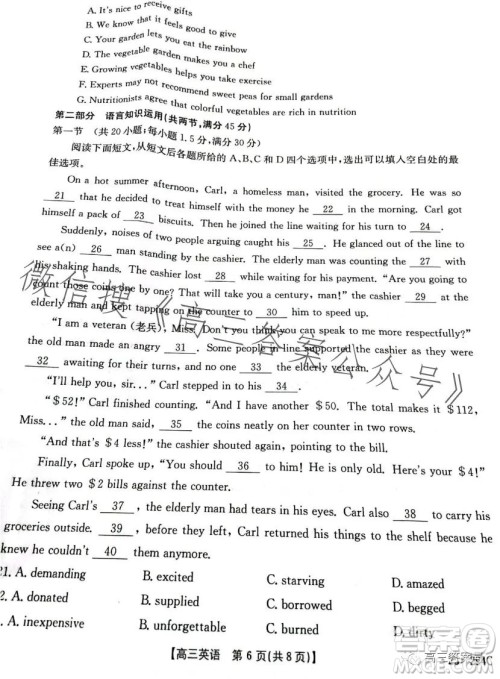 A. It's nice to receive gifts
B. We know that it feels good to give
C. Your garden lets you eat the rainbow
D. The vegetable garden makes you a chef
E. Growing vegetables helps you take exercise
F. Experts may not recommend sweet peas for small gardens
G. Nutritionists agree that colorful vegetables are rich in nutrition
第二部分 语言知识运用(共两节,满分 45 分)
第一节 (共 20 小题;每小题 1.5 分,满分 30 分)
阅读下面短文,从短文后各题所给的 A、B、C 和 D 四个选项中,选出可以填入空白处的最
佳选项。
On a hot summer afternoon, Carl, a homeless man, visited the grocery. He was so
21 that he decided to treat himself with the money he 22 in the morning. Carl got
himself a pack of 23 biscuits. Then he joined the line waiting for his turn to 24 .
Suddenly, noises of two people arguing caught his 25 . He glanced out of the line to
see a(n) 26 man standing by the cashier. The elderly man was counting the 27 with
his shaking hands. The cashier lost 28 while waiting for his payment. "Are you going to
count those coins one by one? That will take you a century, man!" the cashier 29 at the
elderly man and kept tapping on the counter to 30 him to speed up.
"I am a veteran (老兵), Miss. Don't you think you can speak to me more respectfully?"
the old man made an angry 31 . Some people in line supported the cashier as they
32 awaiting for their turns, and no one 33 the elderly veteran.
"I'll help you, sir. . ." Carl stepped in to his 34 .
"$52!" Carl finished counting. "And I have another $50. The total makes it $112,
Miss. . ." the old man said, 35 the coins neatly on her counter in two rows.
"And that's $4 less!" the cashier shouted again, pointing to the bill.
Finally, Carl spoke up, "You should 36 to him! He is only old. Here's your $4!"
He threw two $2 bills against the counter.
Seeing Carl's 37 , the elderly man had tears in his eyes. Carl also 38 to carry his
groceries outside. 39 , before they left, Carl returned his things to the shelf because he
knew he couldn't 40 them anymore.
21. A. demanding B. excited C. starving D. amazed
2. A. donated B. supplied C. borrowed D. begged
. A. inexpensive B. unforgettable C. unknown D. dirty
【高三英语 第 6 页(共 8 页)】
微信搜《高三答案公众号》